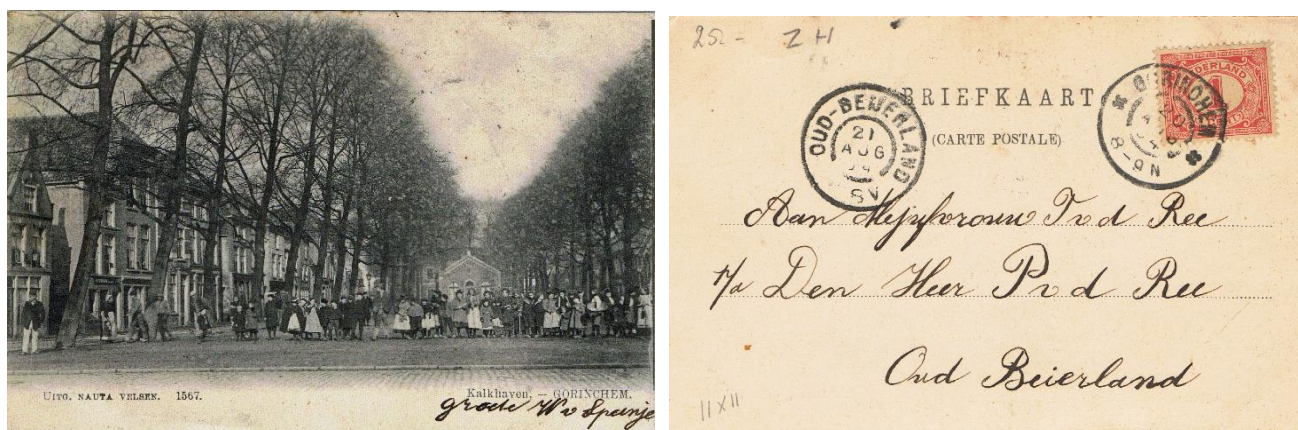 UITG. NAUTA VELSEN. 1567.
Kalkhaven. — GORINCHEM.
groete W v Spanje
25.- ZH
BRIEFKAART
(CARTE POSTALE)
OUD-BEIJERLAND
21
AUG
8V
GORINCHEM
8-9N
NEDERLAND
1
Aan Mejufvrouw T v d Ree
p/a Den Heer P v d Ree
Oud Beierland
11X11